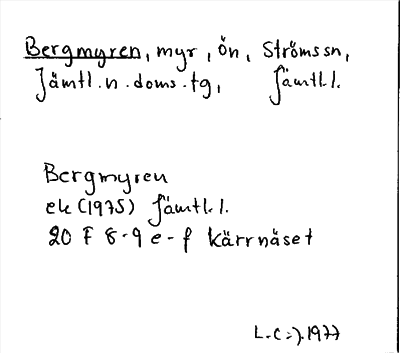 Bergmyren, myr, ön, Strömssn,
Jämtl. n. doms. tg, Jämtl. l.
Bergmyren
ek (1975) Jämtl. l.
20 F 8-9 e-f Kärrnäset
1977